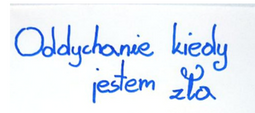 Oddychanie kiedy
jestem zła